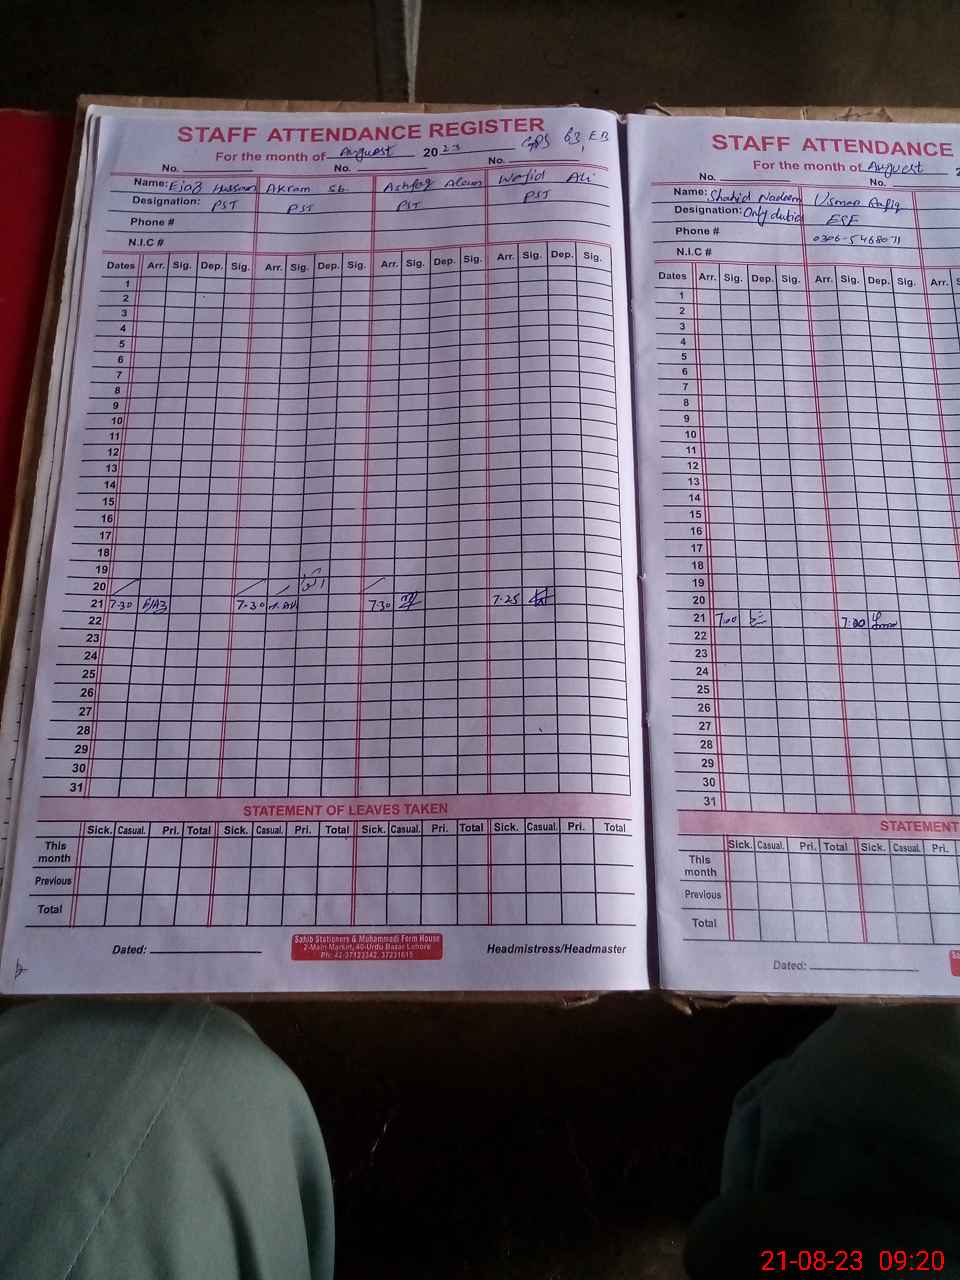 STAFF ATTENDANCE REGISTER
For the month of Auguest 2023 GPS 63, EB
No. No. No.
Name: Ejaz Hussain Akram Sb. Ashfaq Wajid Ali
Designation: PST PST PST PST
Phone #
N.I.C #
Dates Arr. Sig. Dep. Sig. Arr. Sig. Dep. Sig. Arr. Sig. Dep. Sig. Arr. Sig. Dep. Sig.
1
2
3
4
5
6
7
8
9
10
11
12
13
14
15
16
17
18
19
20
21 7-30 7-30 7-30 7-25
22
23
24
25
26
27
28
29
30
31
STATEMENT OF LEAVES TAKEN
Sick. Casual. Pri. Total Sick. Casual. Pri. Total Sick. Casual. Pri. Total Sick. Casual. Pri. Total
This month
Previous
Total
Dated: Headmistress/Headmaster
Sahib Stationers & Muhammadi Form House
2-Main Market, 40-Urdu Bazar Lahore
Ph: 42-37123342, 37231615
STAFF ATTENDANCE
For the month of Auguest 2
No. No.
Name: Shahid Nadeem Usman Rafiq
Designation: ESE
Phone # 0306-5468071
N.I.C #
Dates Arr. Sig. Dep. Sig. Arr. Sig. Dep. Sig. Arr. S
1
2
3
4
5
6
7
8
9
10
11
12
13
14
15
16
17
18
19
20
21 7:00 7:00
22
23
24
25
26
27
28
29
30
31
STATEMENT
Sick. Casual. Pri. Total Sick. Casual. Pri.
This month
Previous
Total
Dated:
21-08-23 09:20